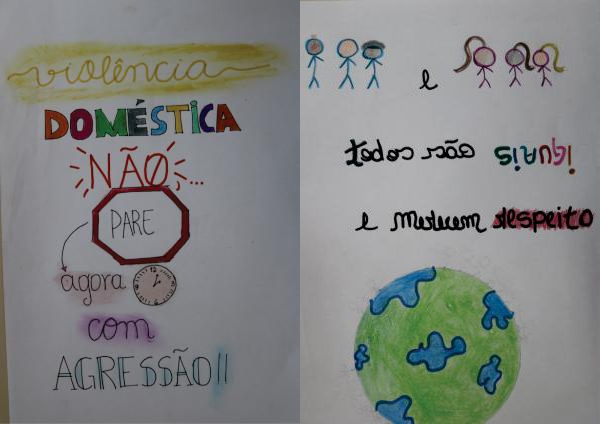 violência
DOMÉSTICA
NÃO...
PARE
agora
com
AGRESSÃO!!
e
todos são iguais
e merecem respeito